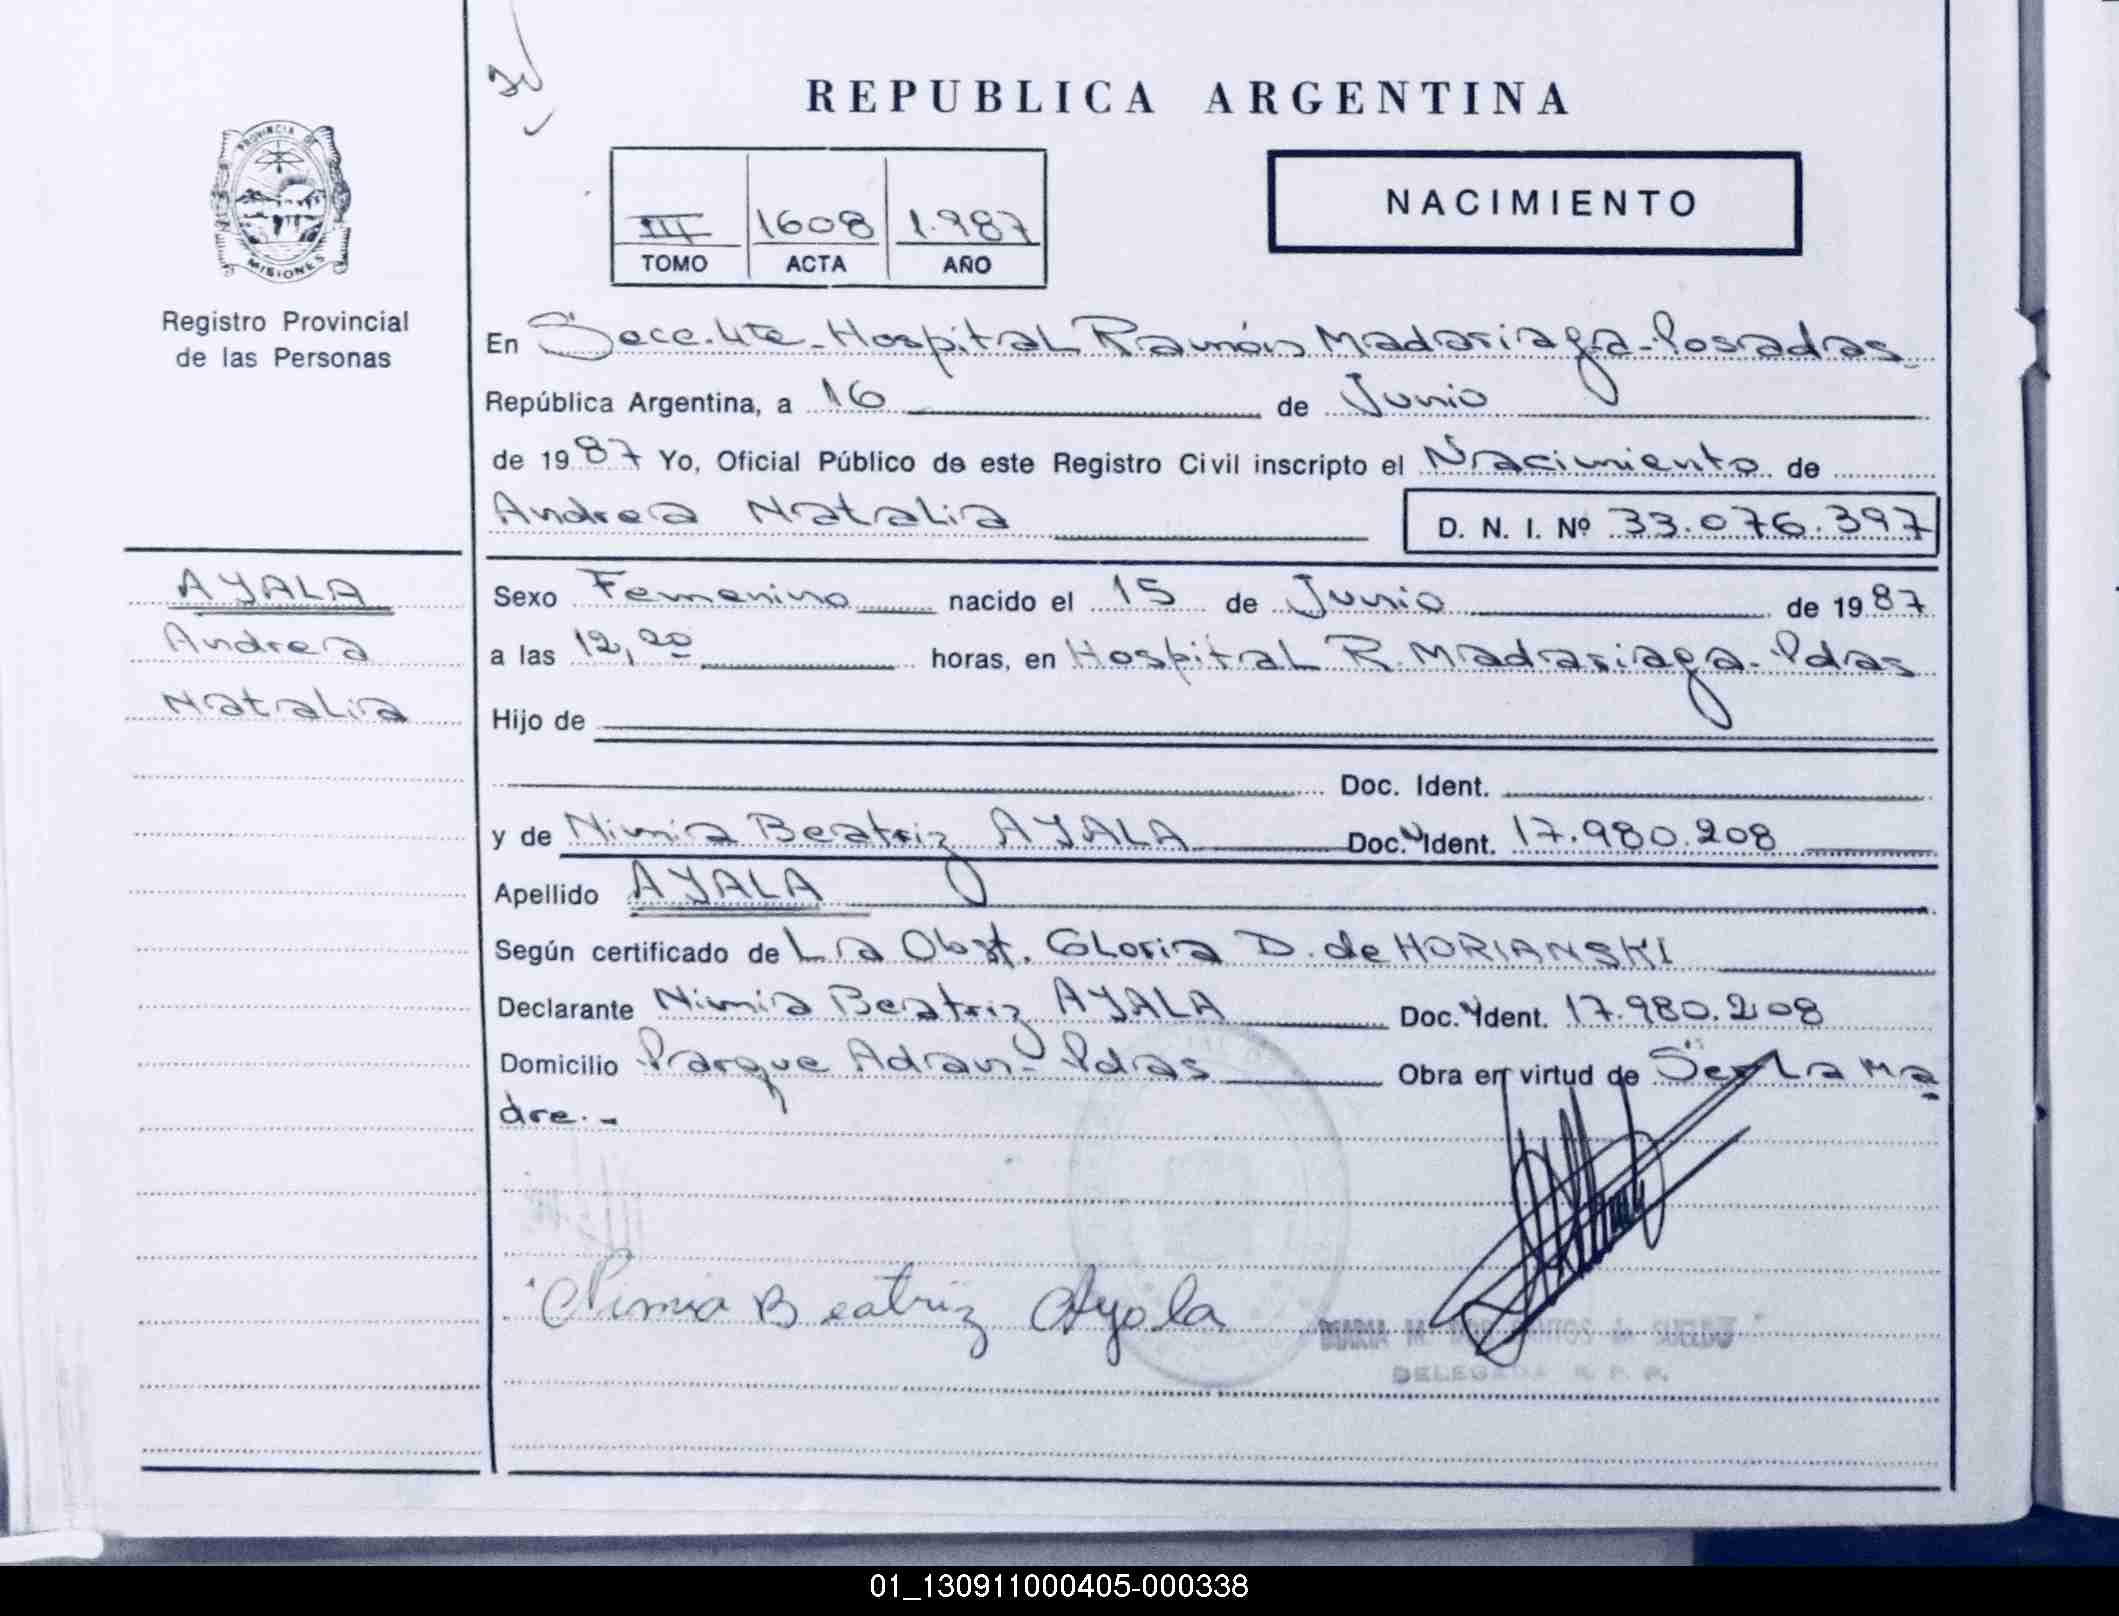 REPUBLICA ARGENTINA
PROVINCIA DE
MISIONES
Registro Provincial
de las Personas
III 1608 1.987
TOMO ACTA AÑO
NACIMIENTO
En Secc. 4ta - Hospital Ramón Madariaga - Posadas
República Argentina, a 16 de Junio
de 1987 Yo, Oficial Público de este Registro Civil inscripto el Nacimiento de
Andrea Natalia D. N. I. Nº 33.076.397
AYALA
Andrea
Natalia
Sexo Femenino nacido el 15 de Junio de 1987
a las 12,20 horas, en Hospital R. Madariaga - Pdas
Hijo de
Doc. Ident.
y de Nimia Beatriz AYALA Doc. Ident. 17.980.208
Apellido AYALA
Según certificado de La Obst. Gloria D. de HORIANSKI
Declarante Nimia Beatriz AYALA Doc. Ident. 17.980.208
Domicilio Parque Adam - Pdas Obra en virtud de Ser La Ma
dre.-
Nimia Beatriz Ayala
MARIA M.
DELEGADA R. P. P.
01_130911000405-000338